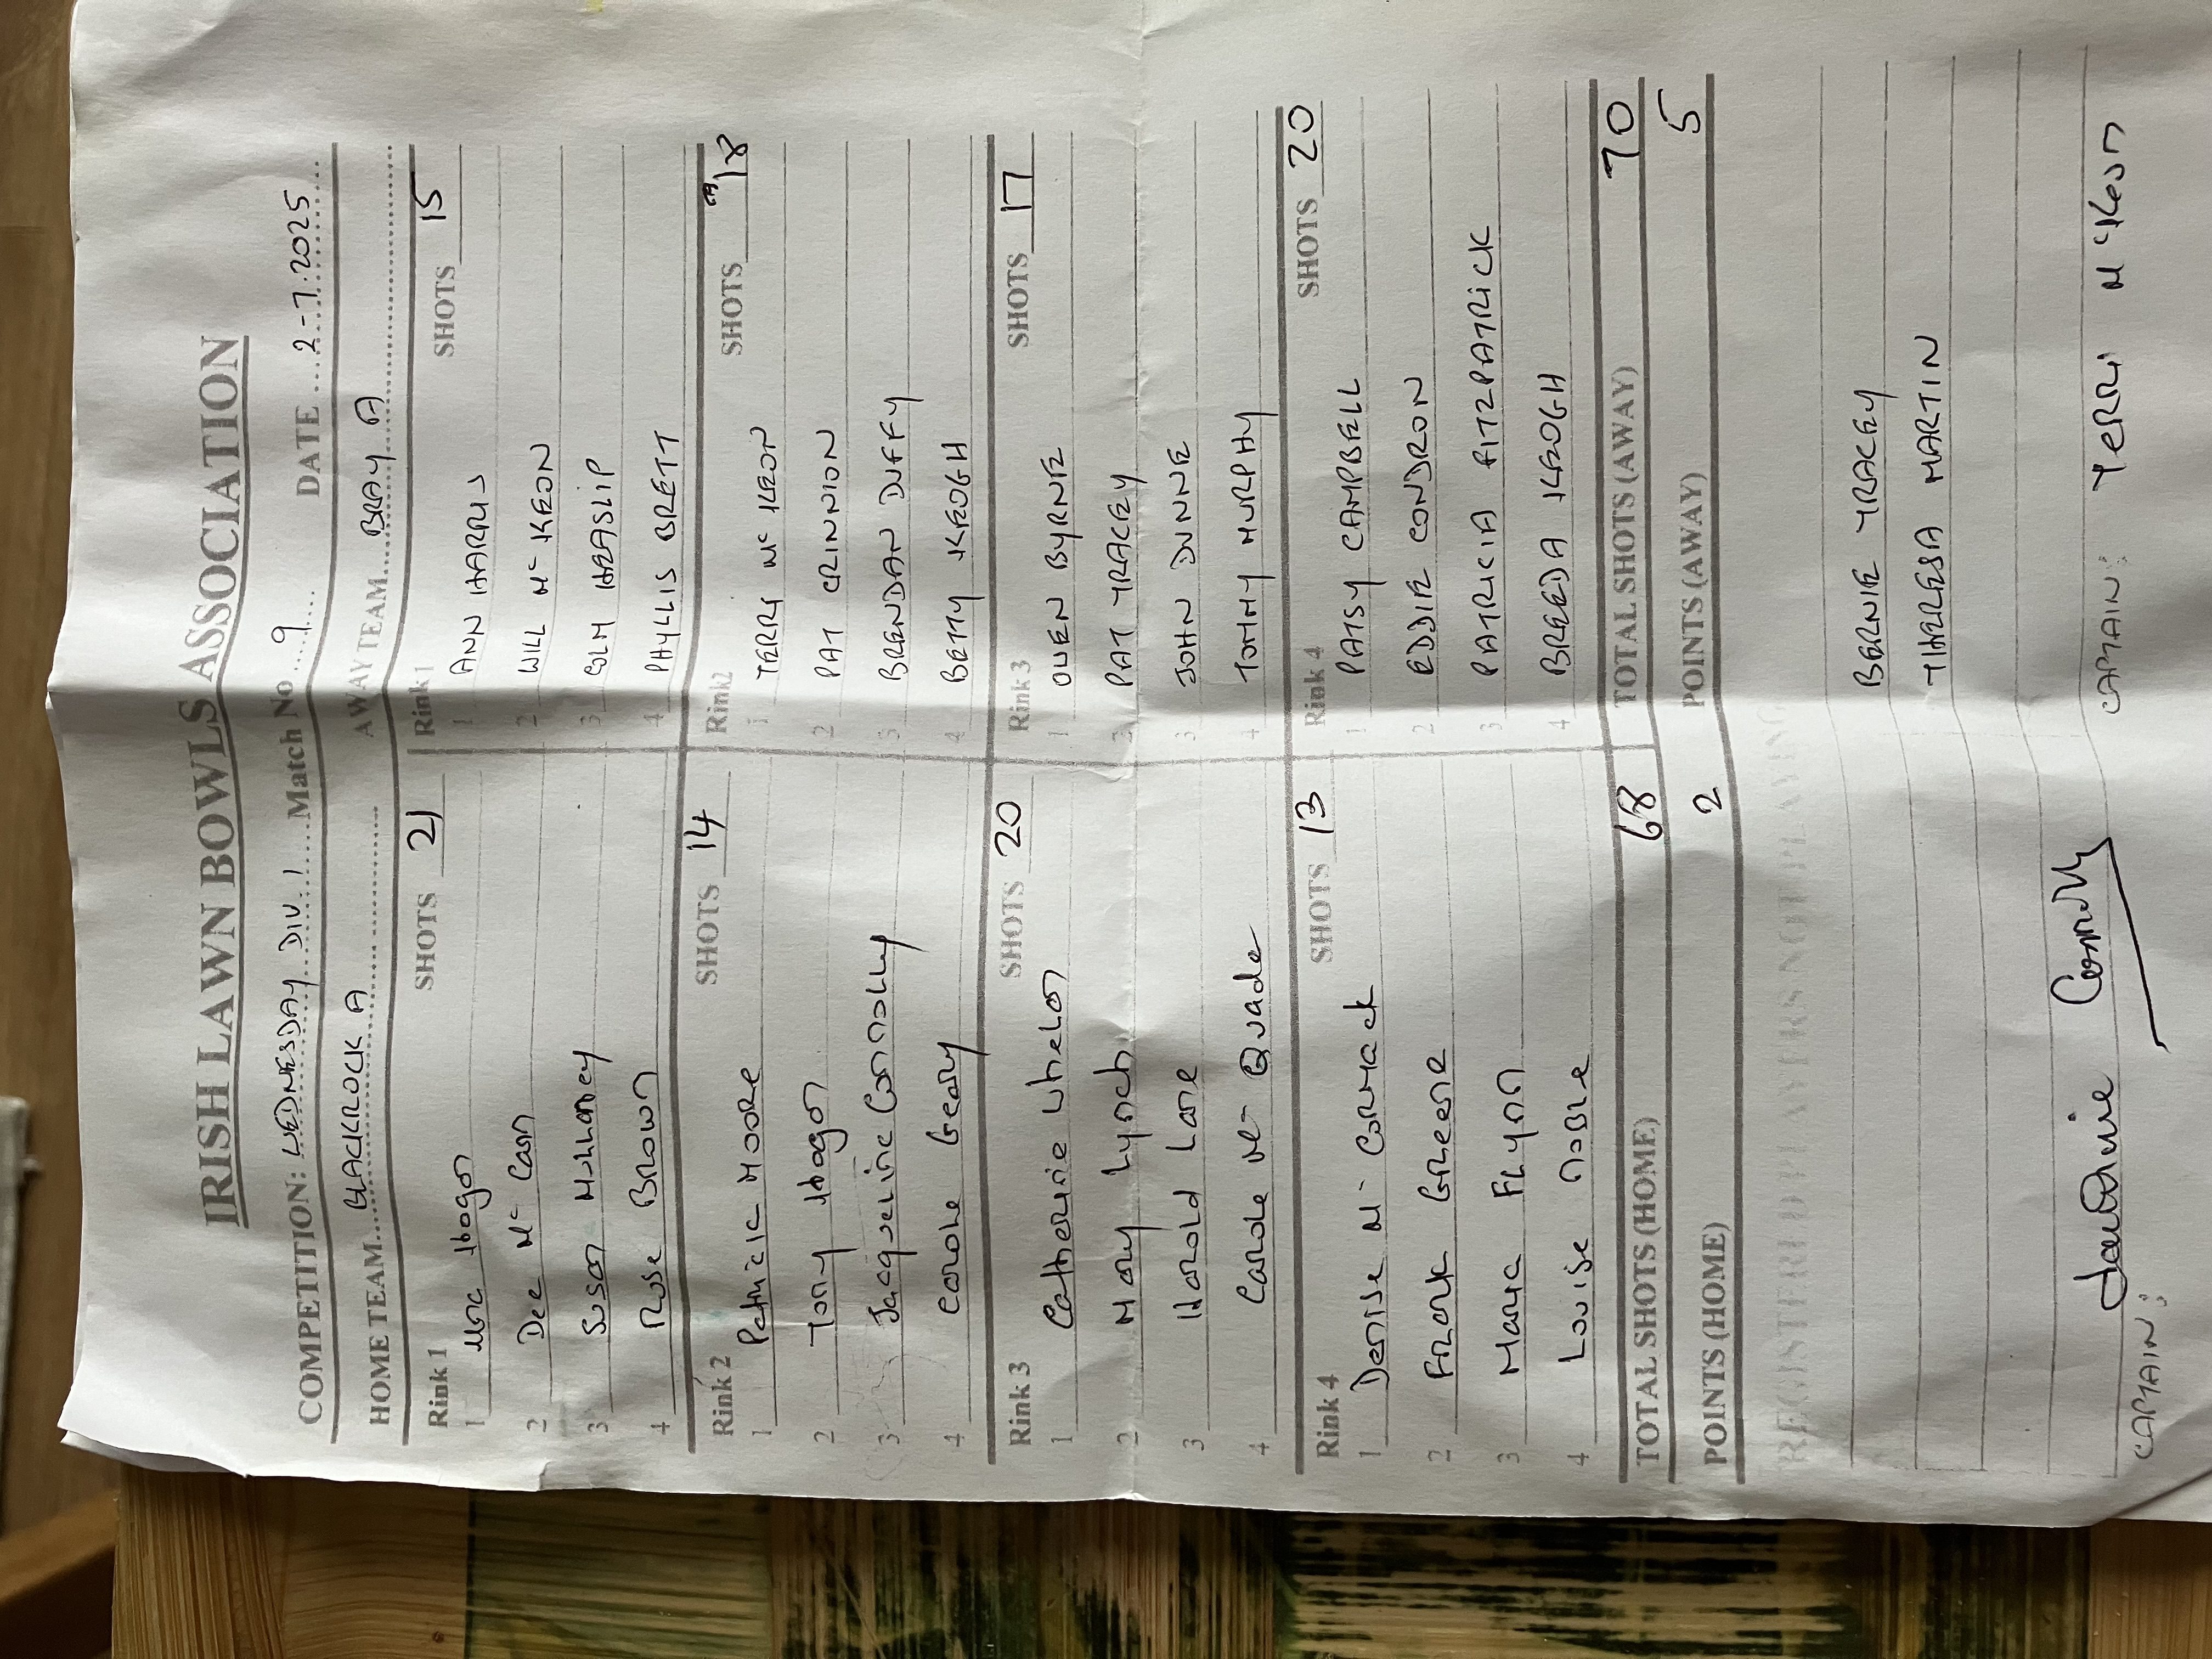 IRISH LAWN BOWLS ASSOCIATION
COMPETITION: WEDNESDAY DIV. 1 Match No 9 DATE 2-7-2025
HOME TEAM BLACKROCK A AWAY TEAM BRAY A
Rink 1 SHOTS 21 Rink 1 SHOTS 15
1 Una Hogan 1 ANN HARRIS
2 Dee Mc Cann 2 WILL Mc KEON
3 Susan Mullaney 3 COLM HEASLIP
4 Rose Brown 4 PHYLLIS BRETT
Rink 2 SHOTS 14 Rink2 SHOTS 18
1 Patricia Moore 1 TERRY Mc KEON
2 Tony Hogan 2 PAT CRINNION
3 Jacqueline Connolly 3 BRENDAN DUFFY
4 Carole Geary 4 BETTY KEOGH
Rink 3 SHOTS 20 Rink 3 SHOTS 17
1 Catherine Whelan 1 OWEN BYRNE
2 Mary Lynch 2 PAT TRACEY
3 Harold Lane 3 JOHN DUNNE
4 Carole Mc Quade 4 TOMMY MURPHY
Rink 4 SHOTS 13 Rink 4 SHOTS 20
1 Denise Mc Cormack 1 PATSY CAMPBELL
2 Frank Greene 2 EDDIE CONDRON
3 Marie Flynn 3 PATRICIA FITZPATRICK
4 Louise Noble 4 BREEDA KEOGH
TOTAL SHOTS (HOME) 68 TOTAL SHOTS (AWAY) 70
POINTS (HOME) 2 POINTS (AWAY) 5
REGISTERED PLAYERS NOT PLAYING
BERNIE TRACEY
THERESA MARTIN
CAPTAIN: Jacqueline Connolly CAPTAIN: Terry McKeon